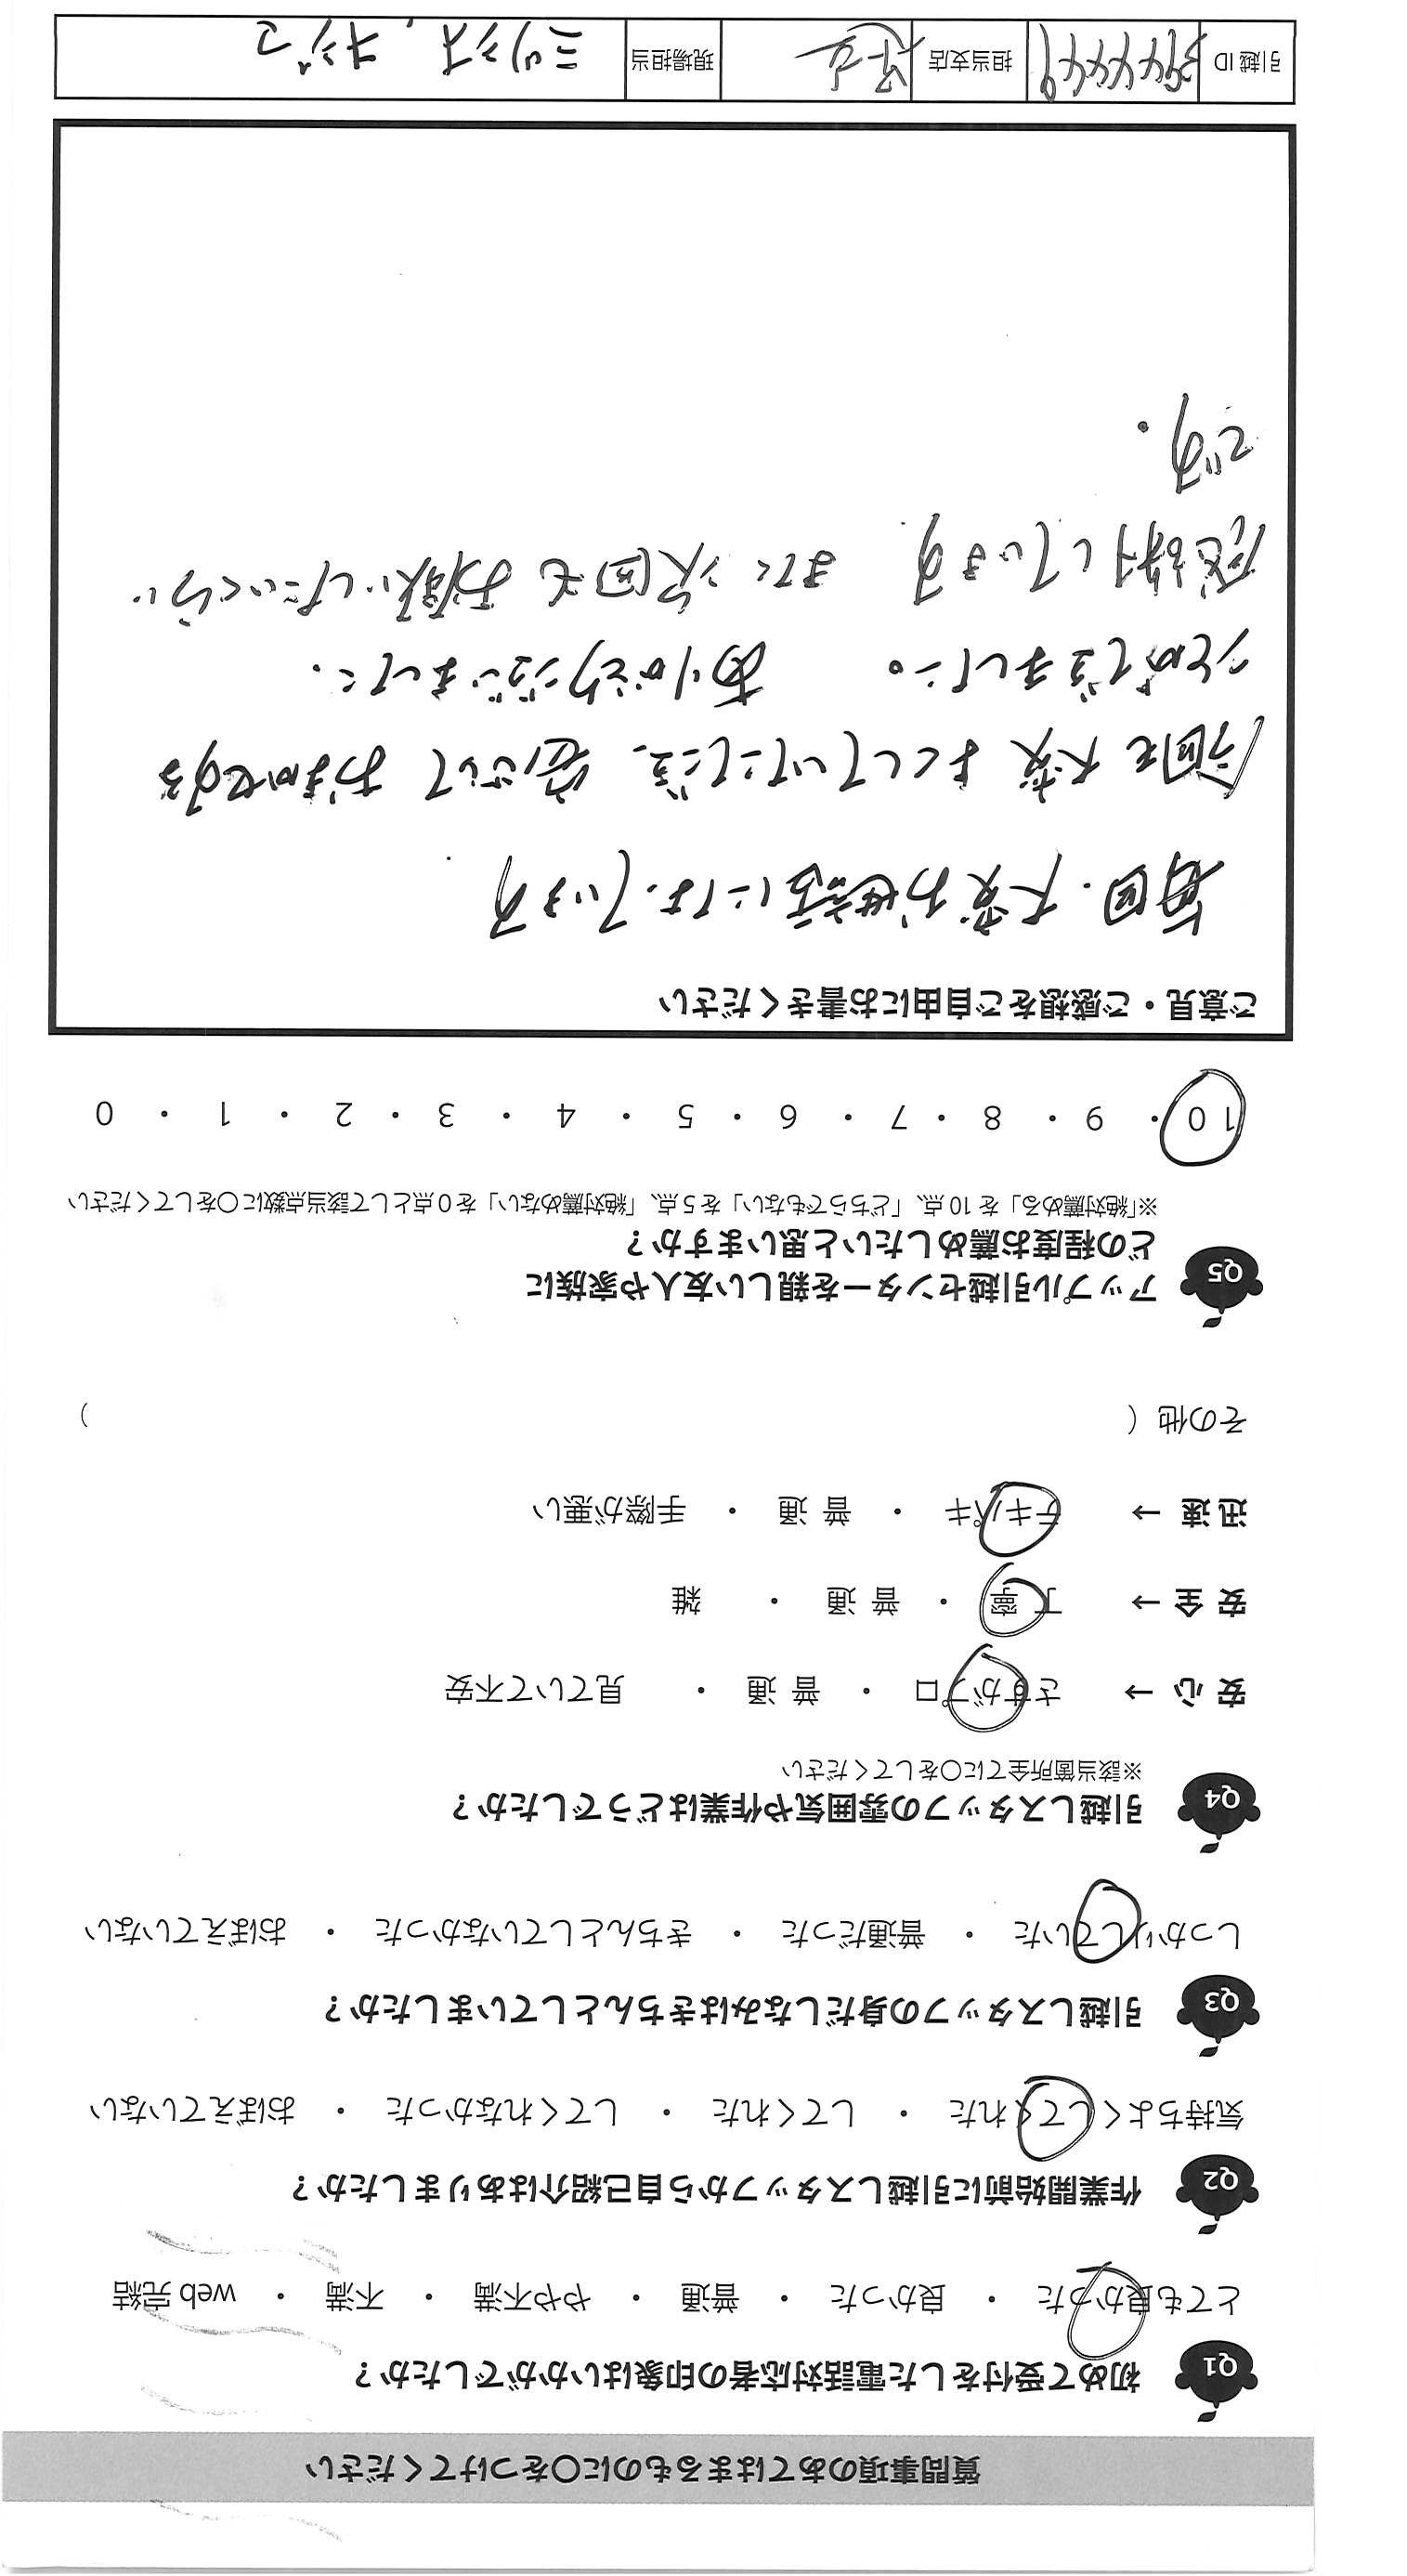 質問事項のあてはまるものに○をつけてください
Q1 初めて受付をした電話対応者の印象はいかがでしたか？
とても良かった ・ 良かった ・ 普通 ・ やや不満 ・ 不満 ・ web 完結
Q2 作業開始前に引越しスタッフから自己紹介はありましたか？
気持ちよくしてくれた ・ してくれた ・ してくれなかった ・ おぼえていない
Q3 引越しスタッフの身だしなみはきちんとしていましたか？
しっかりしていた ・ 普通だった ・ きちんとしていなかった ・ おぼえていない
Q4 引越しスタッフの雰囲気や作業はどうでしたか？
※該当箇所全てに○をしてください
安 心 → さすがプロ ・ 普 通 ・ 見ていて不安
安 全 → 丁 寧 ・ 普 通 ・ 雑
迅 速 → テキパキ ・ 普 通 ・ 手際が悪い
その他（ ）
Q5 アップル引越センターを親しい友人や家族に
どの程度お薦めしたいと思いますか？
※「絶対薦める」を 10 点、「どちらでもない」を 5 点、「絶対薦めない」を 0 点として該当点数に○をしてください
10 ・ 9 ・ 8 ・ 7 ・ 6 ・ 5 ・ 4 ・ 3 ・ 2 ・ 1 ・ 0
ご意見・ご感想をご自由にお書きください
毎回、大変お世話になっています
今回も大変よくしていただき、安心しておまかせする
ことができました。 ありがとうございました、
感謝しています また次回もお願いしたいくらい
です.
引越 ID 担当支店 現場担当